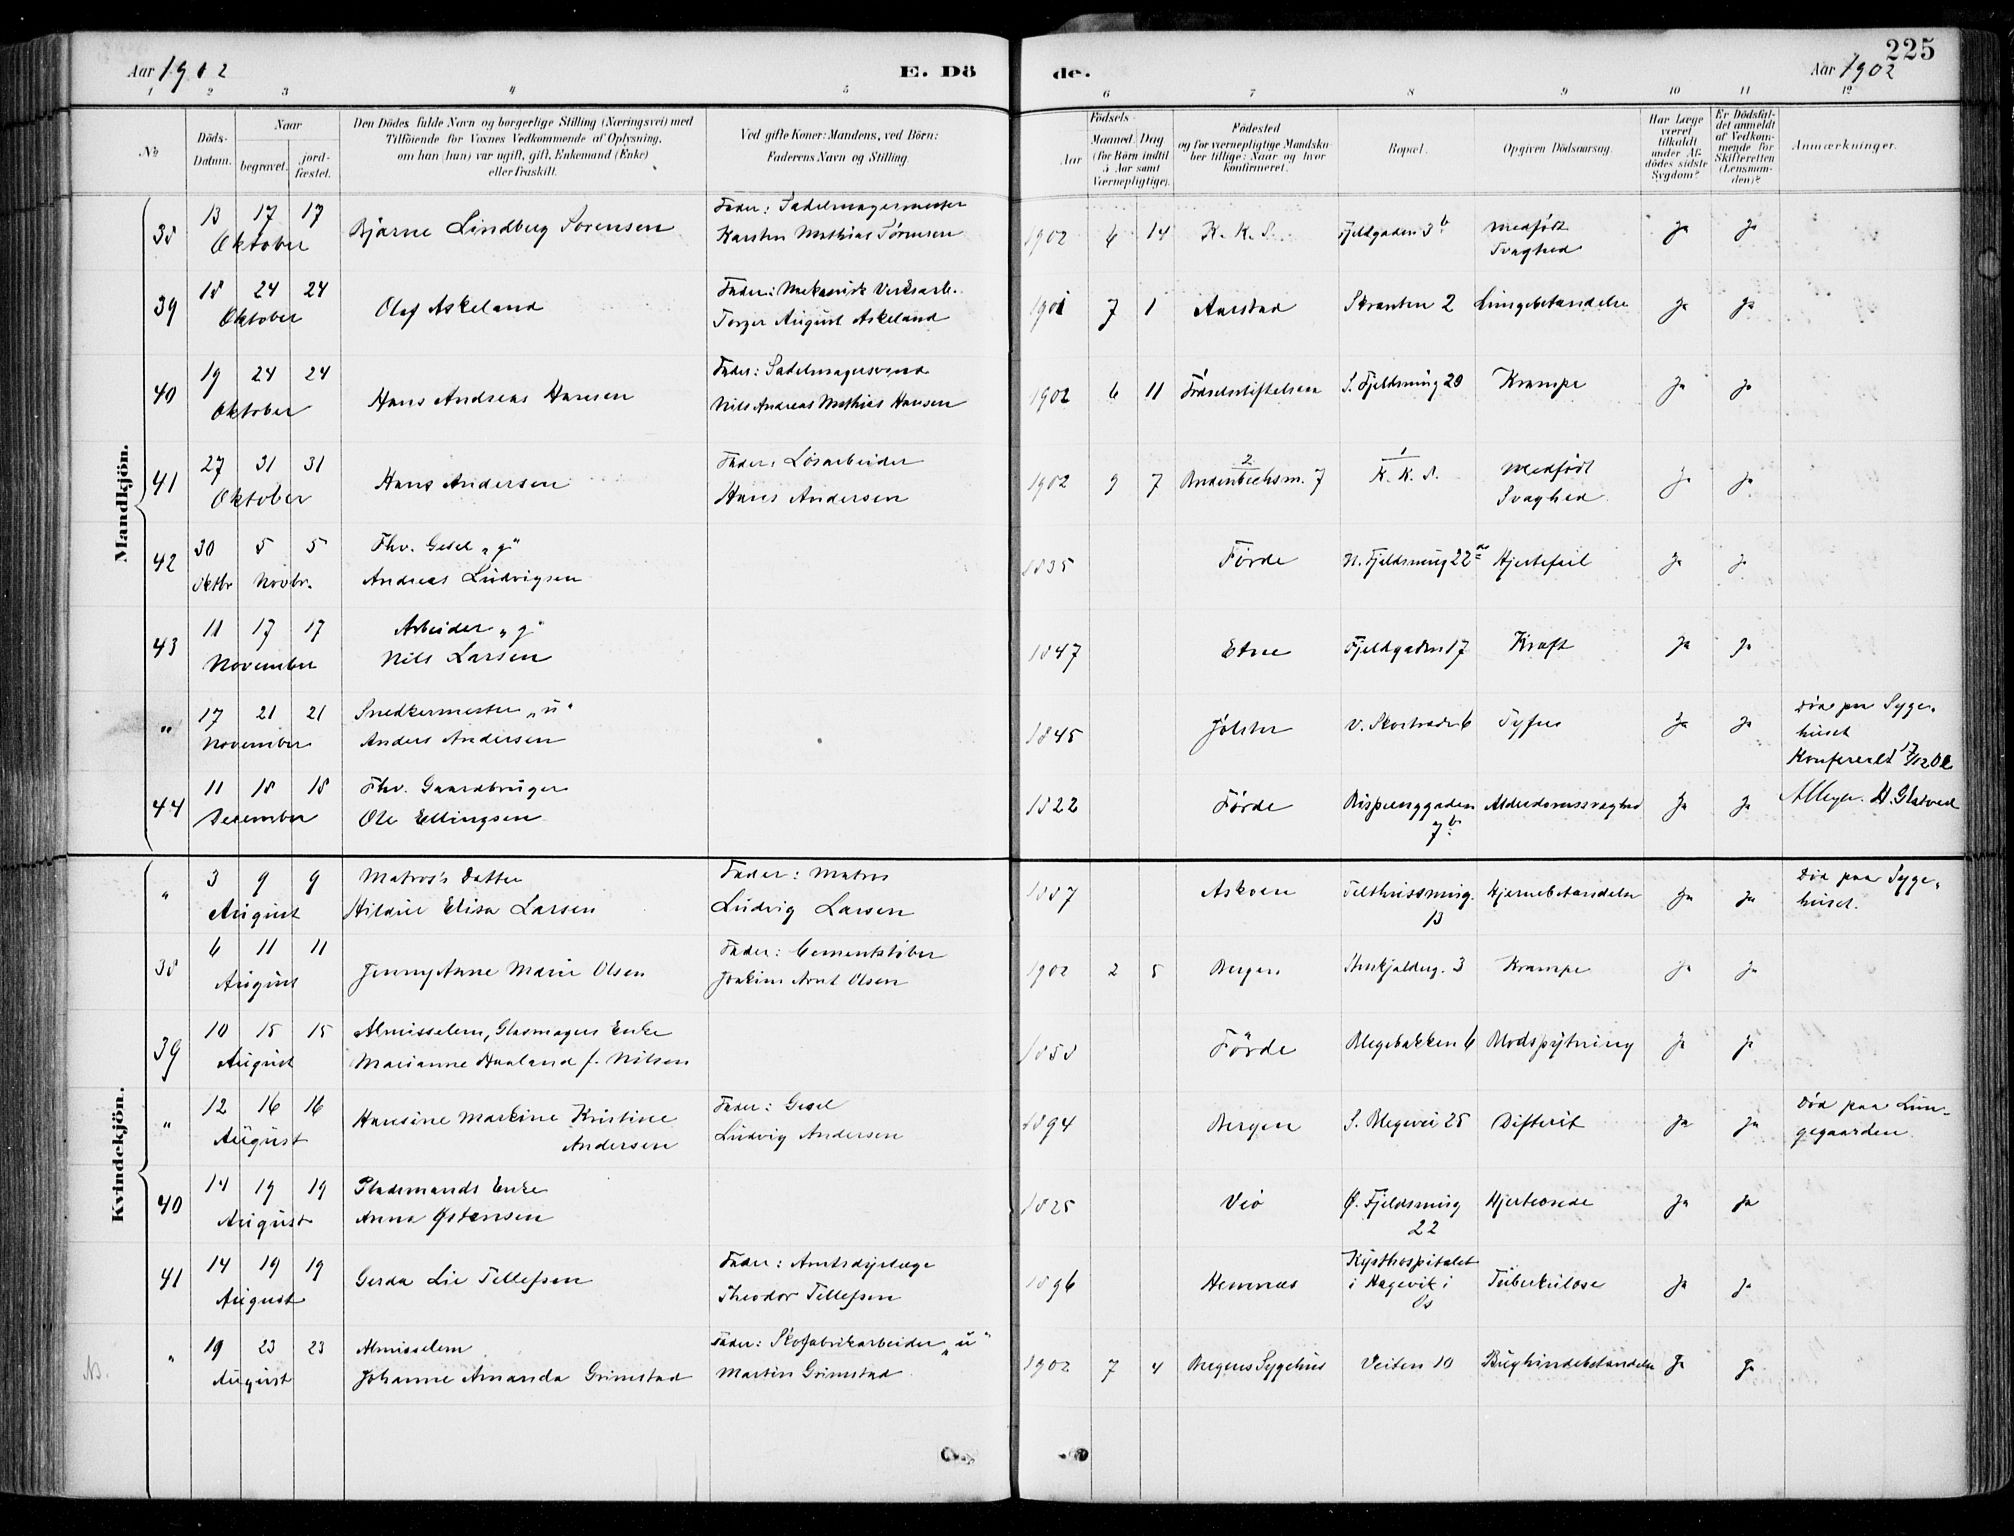 Aar 1902
E. Dö
de.
Aar 1902
225
1 2 3 4 5 6 7 8 9 10 11 12
No.
Döds-Datum.
Naar
begravet.
jord-fæstet.
Den Dödes fulde Navn og borgerlige Stilling (Næringsvei) med
Tilföiende for Voxnes Vedkommende af Oplysning,
om han (hun) var ugift, gift, Enkemand (Enke)
eller fraskilt.
Ved gifte Koner: Mandens, ved Börn:
Faderens Navn og Stilling.
Födsels-
Aar
Maaned (for Börn indtil 5 Aar samt Værnepligtige).
Dag
Födested
og for værnepligtige Mandskaber tillige: Naar og hvor konfirmeret.
Bopæl.
Opgiven Dödsaarsag.
Har Læge været tilkaldt under Afdödes sidste Sygdom?
Er Dödsfaldet anmeldt af Vedkommende for Skifteretten (Lensmanden)?
Anmærkninger.
Mandkjön.
38 13 17 17 Oktober Bjarne Lindberg Sørensen Fader: Sadelmagermester
Karsten Mathias Sørensen 1902 6 14 K. K. S. Fjeldgaden 3b medfødt Svaghed Ja Ja
39 18 24 24 Oktober Olaf Askeland Fader: Mekanisk Verksarb.
Torger August Askeland 1901 7 1 Aarstad Skranten 2 Lungebetændelse Ja Ja
40 19 24 24 Oktober Hans Andreas Hansen Fader: Sadelmagersvend
Nils Andreas Mathias Hansen 1902 6 11 Fødselsstiftelsen S. Fjeldsmug 20 Krampe Ja Ja
41 27 31 31 Oktober Hans Andersen Fader: Løsarbeider
Hans Andersen 1902 9 7 2 7 1 K. K. S. Medfødt Svaghed Ja Ja
42 30 5 5 Oktbr Novbr. Fhv. Gesel „g“
Andreas Ludvigsen 1835 Førde N. Fjeldsmug 22 Hjertefeil Ja Ja
43 11 17 17 November Arbeider „g“
Nils Larsen 1847 Etne Fjeldgaden 17 Kræft Ja Ja
„ 17 21 21 November Snedkermester „u“
Anders Andersen 1845 Jølster V. Skostræde 6 Tyfus Ja Ja Død paa Syge-
huset
Konfereret 17/12 02
44 11 18 18 December Fhv. Gaardbruger
Ole Ellingsen 1822 Førde Rispenggaden 7b Alderdomssvaghed Ja Ja AMeyer. H. Glatved
Kvindekjön.
„ 3 9 9 August Matros's Datter
Hildur Elisa Larsen Fader: Matros
Ludvig Larsen 1887 Askøen Telthussmug. 13 Hjernebetændelse Ja Ja Død paa Syge-
huset.
38 6 11 11 August Jenny Anne Marie Olsen Fader: Cementstøber
Joakim Arnt Olsen 1902 2 5 Bergen 3 Krampe Ja Ja
39 10 15 15 August Almisselem, Glasmagers Enke
Marianne Haaland f. Nilsen 1858 Førde Blegebakken 6 Blodspytning Ja Ja
„ 12 16 16 August Hansine Markine Kristine
Andersen Fader: Gesel
Ludvig Andersen 1894 Bergen S. Blegevei 25 Difterit Ja Ja Død paa Lun-
gegaarden.
40 14 19 19 August Pladsmands Enke
Anna Østensen 1825 Veø Ø. Fjeldsmug 22 Hjerteonde Ja Ja
41 14 19 19 August Gerda Lie Tellefsen Fader: Amtsdyrlæge
Theodor Tellefsen 1896 Hemnæs Kysthospitalet
i Hagevik i
Os Tuberkulose Ja Ja
„ 19 23 23 August Almisselem
Johanne Amanda Grimstad Fader: Skofabrikarbeider „u“
Martin Grimstad 1902 7 4 Bergens Sygehus Veiten 10 Bughindebetændelse Ja Ja